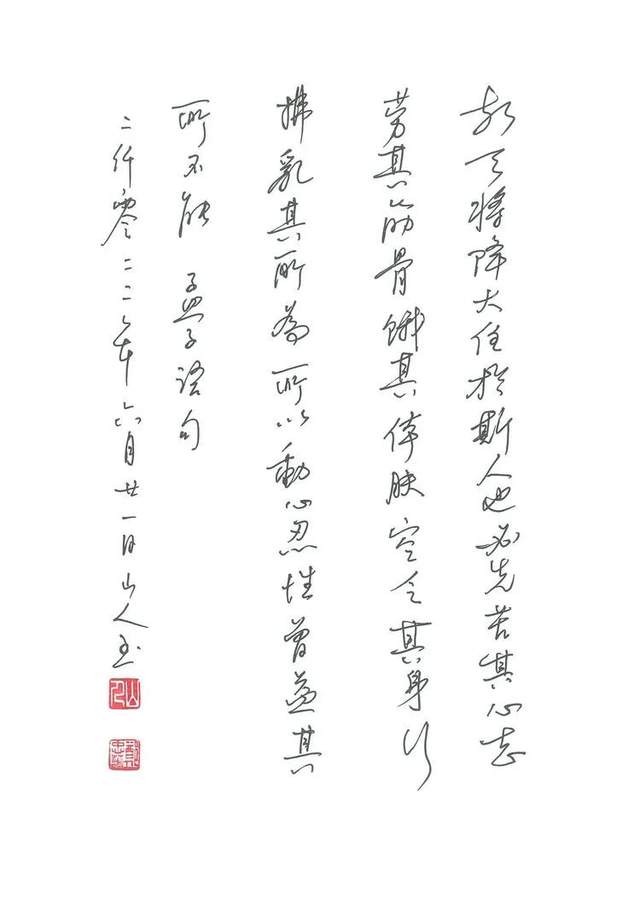 故天将降大任於斯人也必先苦其心志
劳其筋骨餓其体肤空乏其身行
拂乱其所為所以動心忍性曾益其
所不能 孟子语句
二仟零二二年六月廿一日山人玉
山人